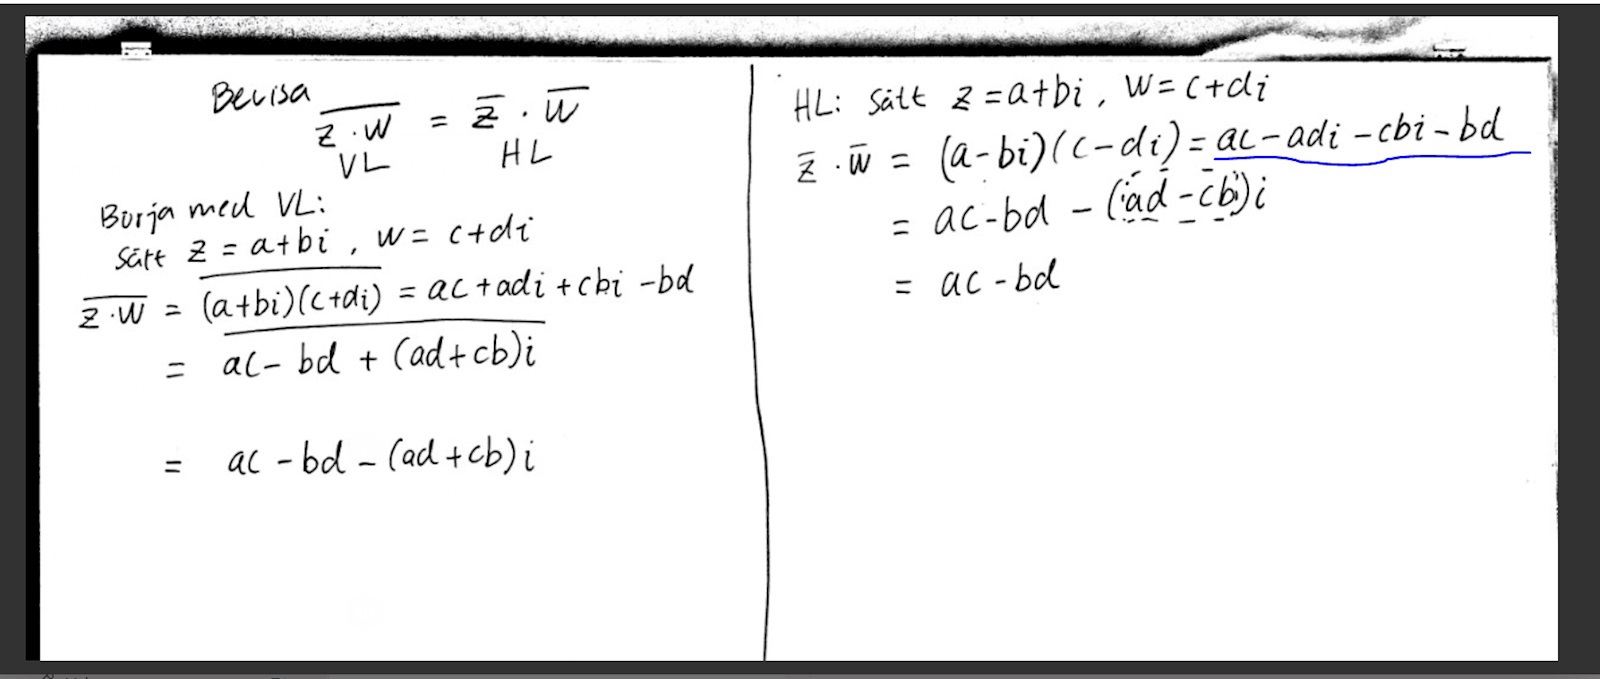 Bevisa
z̅·̅w̅ = z̅ · w̅
VL HL
Börja med VL:
Sätt z = a+bi, w = c+di
z̅·̅w̅ = (a+bi)(c+di) = ac+adi+cbi-bd
= ac-bd + (ad+cb)i
= ac-bd-(ad+cb)i
HL: Sätt z=a+bi, w=c+di
z̅·w̅ = (a-bi)(c-di) = ac-adi-cbi-bd
= ac-bd-(ad-cb)i
= ac-bd